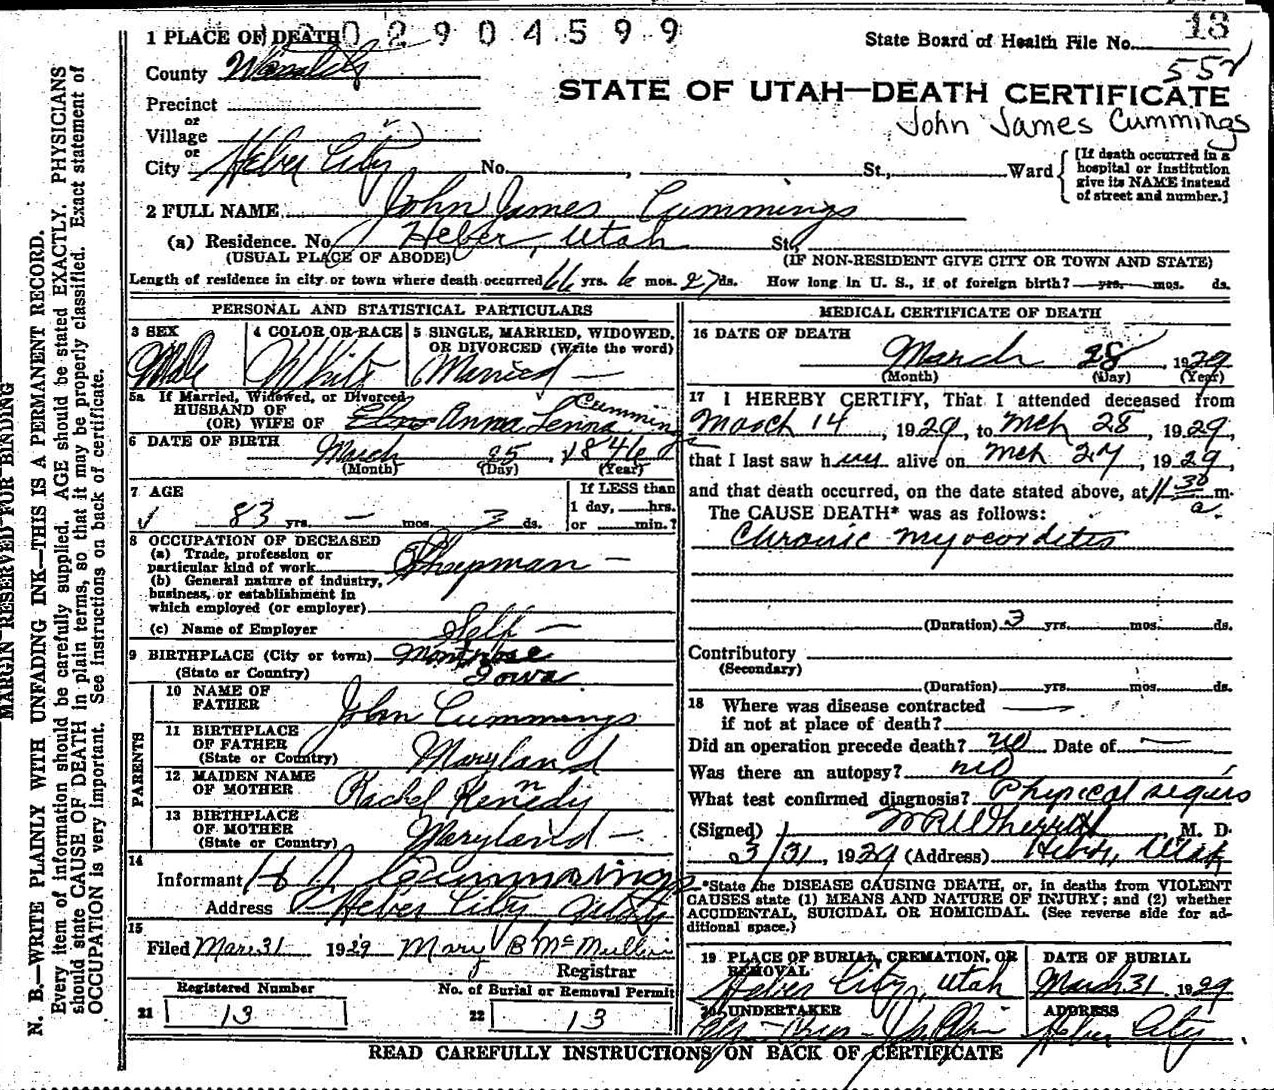 1 PLACE OF DEATH 0 2 9 0 4 5 9 9
State Board of Health File No. 13
552
County Wasatch
STATE OF UTAH—DEATH CERTIFICATE
John James Cummings
Precinct
or
Village
or
City Heber City No. , St., Ward
[If death occurred in a
hospital or institution
give its NAME instead
of street and number.]
2 FULL NAME John James Cummings
(a) Residence. No. Heber, Utah St.,
(USUAL PLACE OF ABODE) (IF NON-RESIDENT GIVE CITY OR TOWN AND STATE)
Length of residence in city or town where death occurred 66 yrs. 6 mos. 27 ds. How long in U. S., if of foreign birth? yrs. mos. ds.
PERSONAL AND STATISTICAL PARTICULARS
3 SEX 4 COLOR OR RACE 5 SINGLE, MARRIED, WIDOWED,
OR DIVORCED (Write the word)
Male White Married —
5a If Married, Widowed, or Divorced
HUSBAND OF
(OR) WIFE OF Anna Lenna Cummings
6 DATE OF BIRTH March 25, 1846
(Month) (Day) (Year)
7 AGE
83 yrs. — mos. 3 ds.
If LESS than
1 day, hrs.
or min.?
8 OCCUPATION OF DECEASED
(a) Trade, profession or
particular kind of work Sheepman —
(b) General nature of industry,
business, or establishment in
which employed (or employer)
(c) Name of Employer Self —
9 BIRTHPLACE (City or town) Montrose
(State or Country) Iowa
PARENTS
10 NAME OF
FATHER John Cummings
11 BIRTHPLACE
OF FATHER
(State or Country) Maryland
12 MAIDEN NAME
OF MOTHER Rachel Kennedy
13 BIRTHPLACE
OF MOTHER
(State or Country) Maryland —
14
Informant Cummings
Address Heber City
15
Filed Mar. 31 1929 Mary B McMullin
Registrar
Registered Number No. of Burial or Removal Permit
21 13 22 13
MEDICAL CERTIFICATE OF DEATH
16 DATE OF DEATH
March 28 1929
(Month) (Day) (Year)
17 I HEREBY CERTIFY, That I attended deceased from
March 14, 1929, to Mch 28, 1929,
that I last saw him alive on Mch 27, 1929,
and that death occurred, on the date stated above, at 11 30 a. m.
The CAUSE DEATH* was as follows:
Chronic myocorditis
(Duration) 3 yrs. mos. ds.
Contributory
(Secondary)
(Duration) yrs. mos. ds.
18 Where was disease contracted —
if not at place of death?
Did an operation precede death? no Date of —
Was there an autopsy? no
What test confirmed diagnosis? Physical signs
(Signed) M. D.
3/31, 1929 (Address) Heber, Utah
*State the DISEASE CAUSING DEATH, or, in deaths from VIOLENT
CAUSES state (1) MEANS AND NATURE OF INJURY; and (2) whether
ACCIDENTAL, SUICIDAL OR HOMICIDAL. (See reverse side for ad-
ditional space.)
19 PLACE OF BURIAL, CREMATION, OR
REMOVAL
Heber City, Utah
DATE OF BURIAL
March 31 1929
20 UNDERTAKER ADDRESS
Heber City
READ CAREFULLY INSTRUCTIONS ON BACK OF CERTIFICATE
MARGIN RESERVED FOR BINDING
N. B.—WRITE PLAINLY WITH UNFADING INK—THIS IS A PERMANENT RECORD.
Every item of information should be carefully supplied. AGE should be stated EXACTLY. PHYSICIANS
should state CAUSE OF DEATH in plain terms, so that it may be properly classified. Exact statement of
OCCUPATION is very important. See instructions on back of certificate.